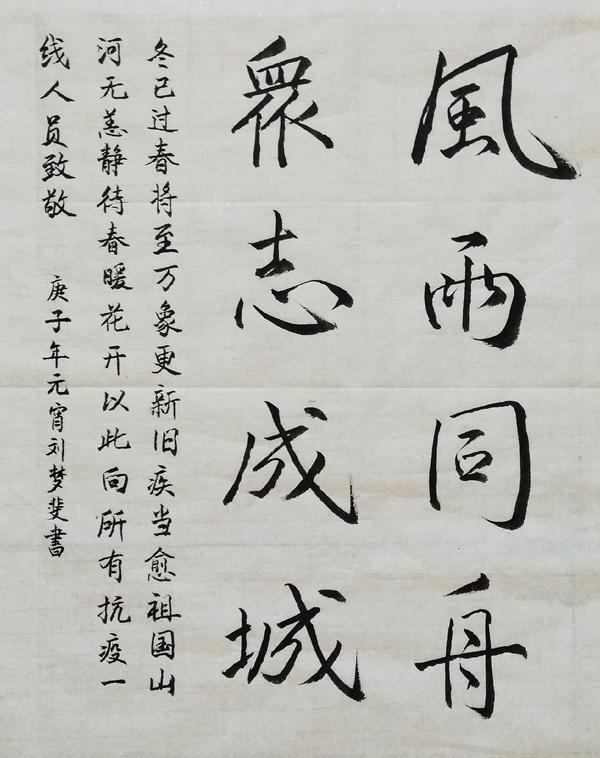 風雨同舟
眾志成城
冬已过春将至万象更新旧疾当愈祖国山
河无恙静待春暖花开以此向所有抗疫一
线人员致敬 庚子年元宵刘梦斐書